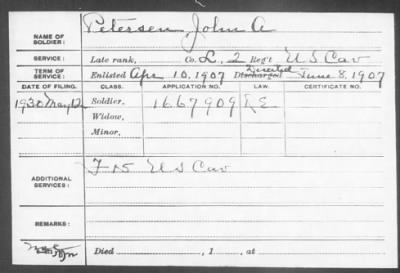 NAME OF SOLDIER: Petersen, John A
SERVICE: Late rank, Co. L, 2 Reg't U S Cav
TERM OF SERVICE: Enlisted Apr 10, 1907 Discharged Deserted June 8, 1907
DATE OF FILING. CLASS. APPLICATION NO. LAW. CERTIFICATE NO.
1930 May 12 Soldier, 1667909
Widow,
Minor,
ADDITIONAL SERVICES: F 15 U S Cav
REMARKS:
Died , 1 , at